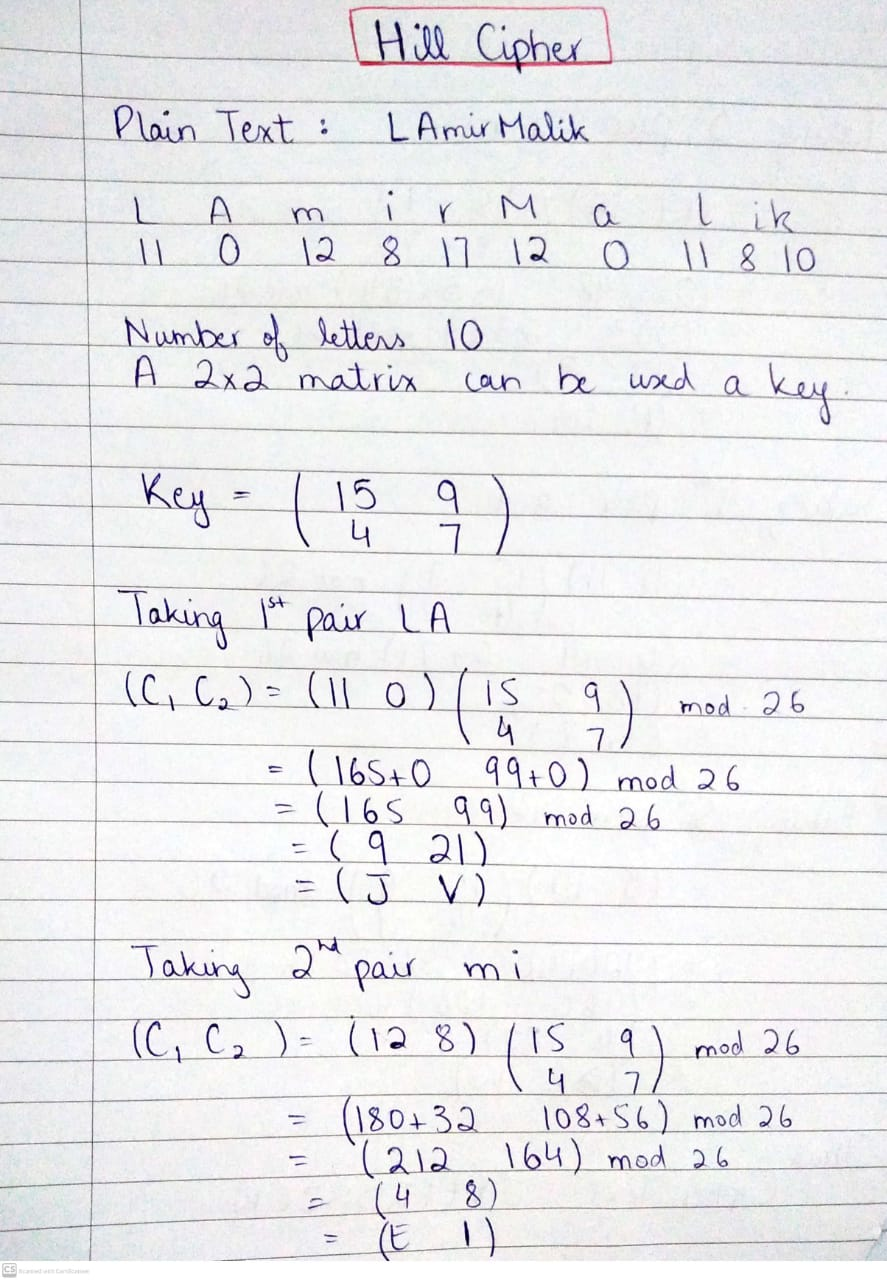 Hill Cipher
Plain Text : LAmirMalik
L A m i r M a l i k
11 0 12 8 17 12 0 11 8 10
Number of letters 10
A 2x2 matrix can be used a key.
Key = ( 15 9
4 7 )
Taking 1st pair LA
(C1 C2) = (11 0) ( 15 9
4 7 ) mod 26
= (165+0 99+0) mod 26
= (165 99) mod 26
= (9 21)
= (J V)
Taking 2nd pair mi
(C1 C2) = (12 8) ( 15 9
4 7 ) mod 26
= (180+32 108+56) mod 26
= (212 164) mod 26
= (4 8)
= (E I)
CS Scanned with CamScanner